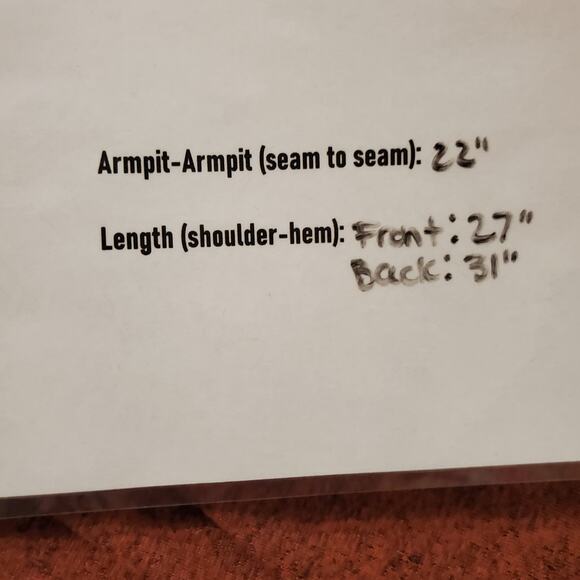 Armpit-Armpit (seam to seam): 22"
Length (shoulder-hem): Front: 27"
Back: 31"